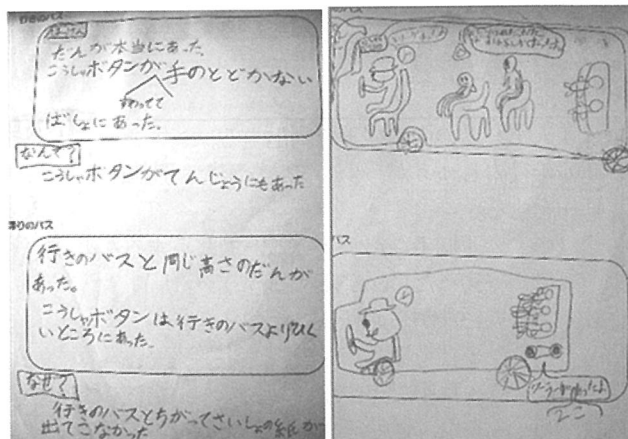 だんが本当にあった。
こうしゃボタンが手のとどかない
すわってて
ばしょにあった。
なんで?
こうしゃボタンがてんじょうにもあった
帰りのバス
行きのバスと同じ高さのだんが
あった。
こうしゃボタンは行きのバスよりひく
いところにあった。
なぜ?
行きのバスとちがってさいしょの紙が
出てこなかった
バス
2こ